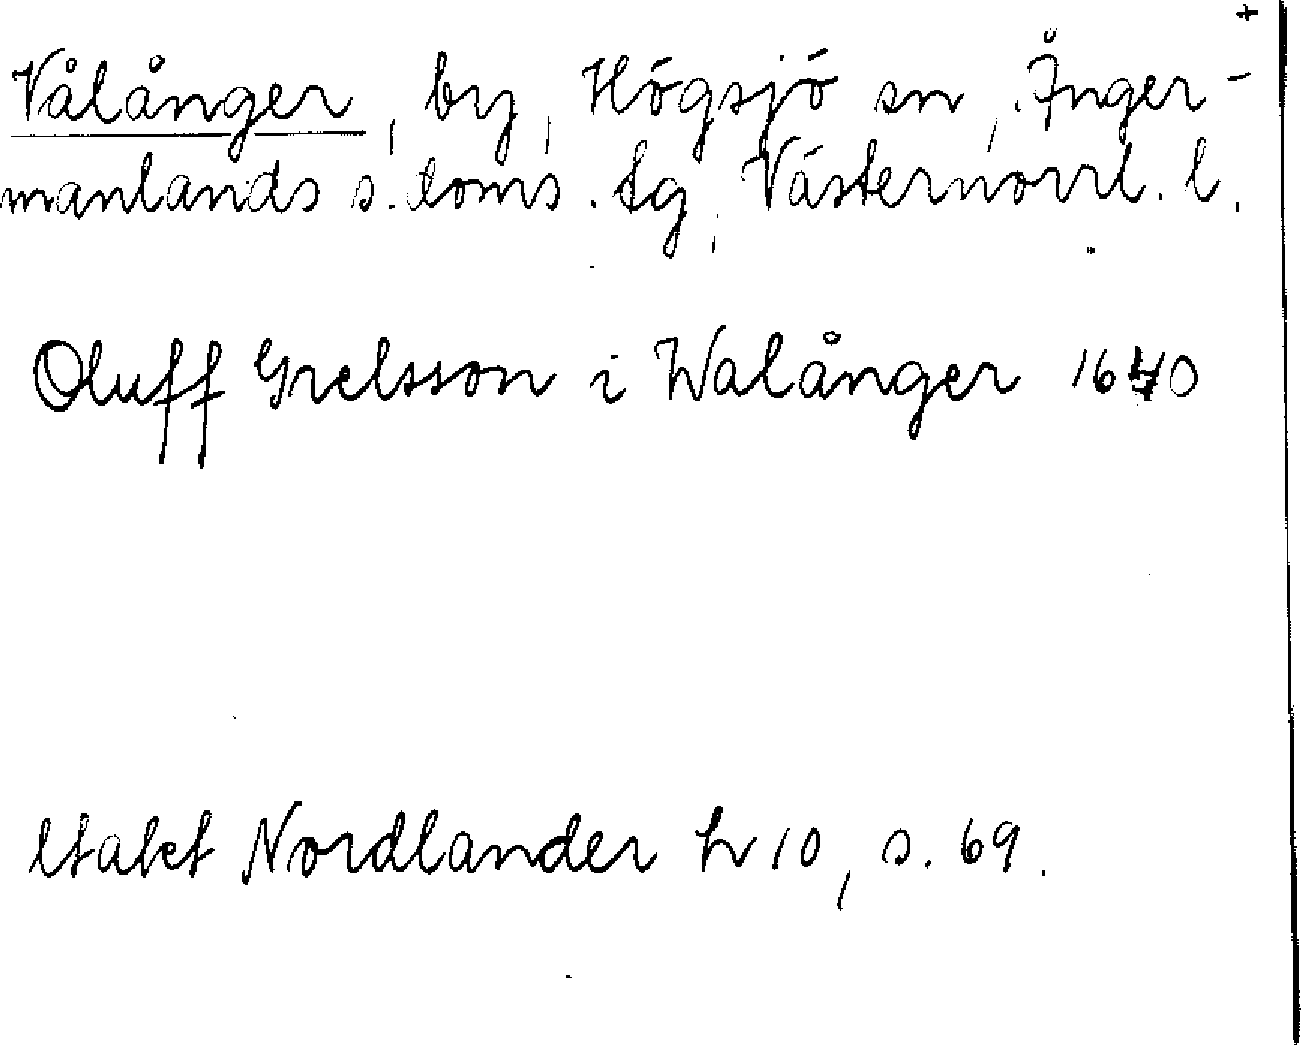 +
Vålånger, by, Högsjö sn, Ånger-
manlands s. doms. tg, Västernorrl. l.
Oluff Grelsson i Walånger 1640
Utakt Nordlander h 10, s. 69.